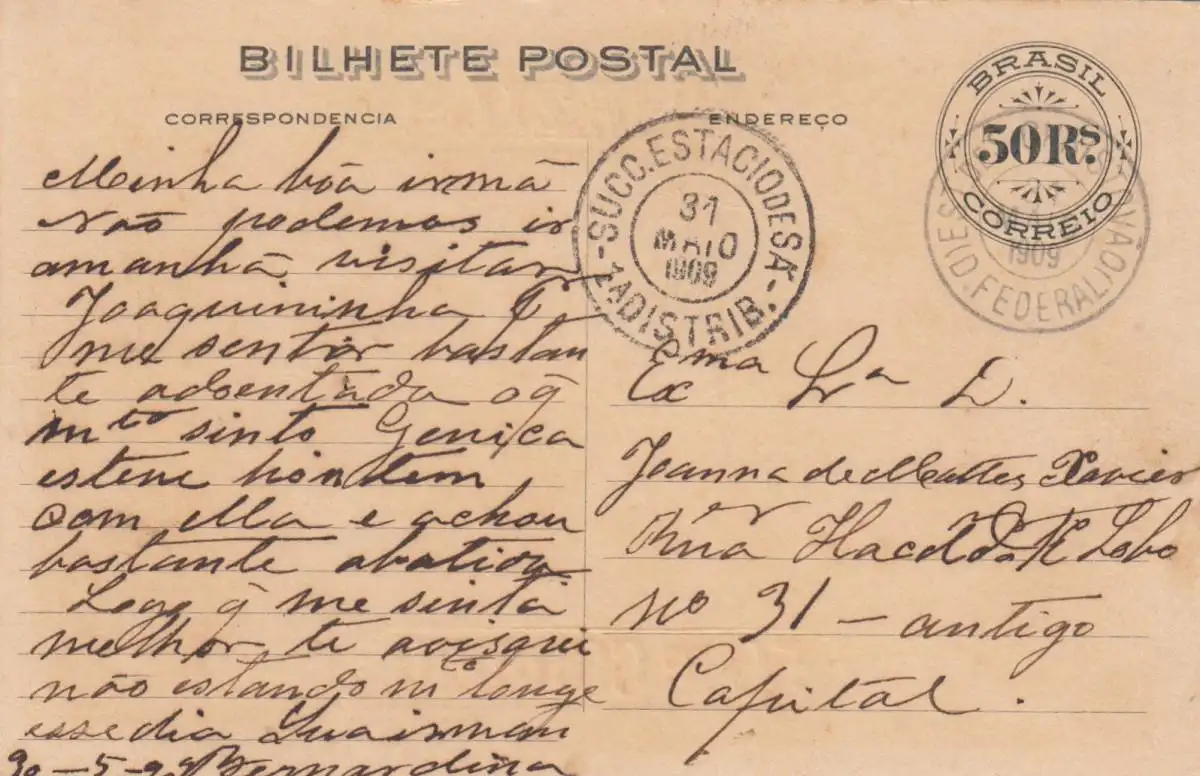 BILHETE POSTAL
CORRESPONDENCIA
ENDEREÇO
BRASIL
50 RS.
CORREIO
SUCC. ESTACIO DE SÁ
31
MAIO
1909
1A DISTRIB.
1909
D. FEDERAL
Minha bôa irmã
Não podemos ir
amanhã visitar
Joaquininha
me sentir bastan
te adoentada o q̃
mto sinto Genica
esteve hontem
com ella e achou
bastante abatida
Logo q̃ me sinta
melhor te avisarei
não estando mto longe
esse dia Tua irman
30-5-909 Bernardina
Exma Sra D.
Joanna de Mattos Xavier
Rua Haddock Lobo
No 31 - antigo
Capital.